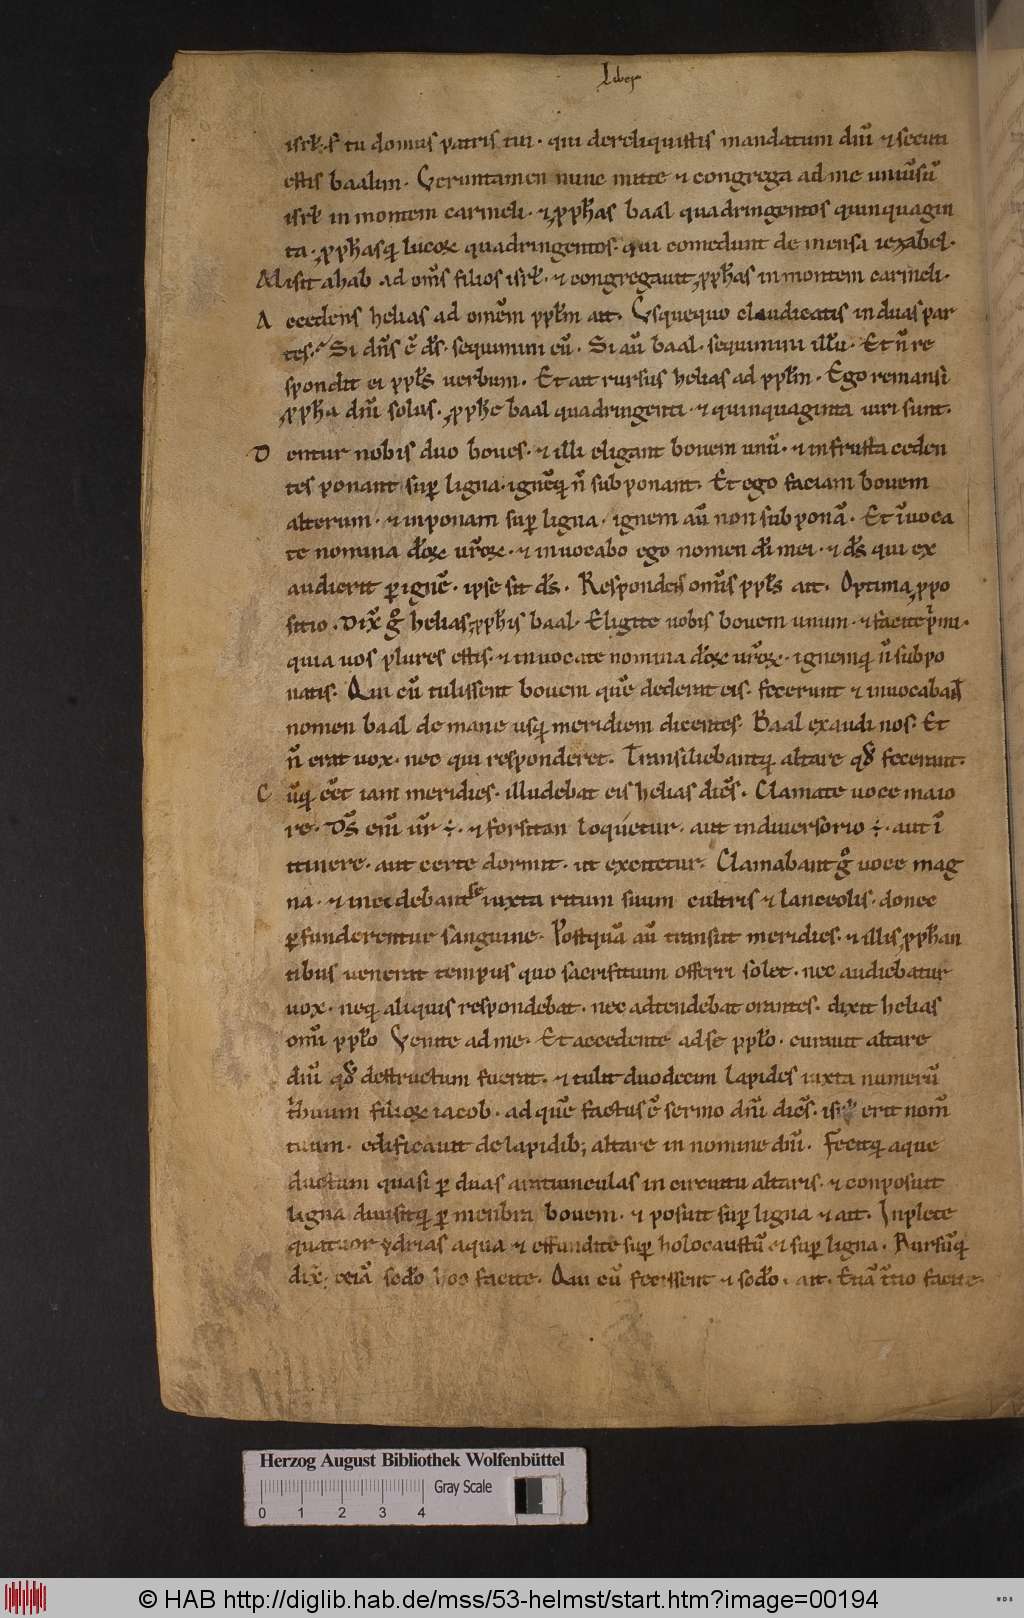 Liber
isrl. s; tu domus patris tui · qui dereliquistis mandatum dn̄i ⁊ secuti
estis baalim · Veruntamen nunc mitte ⁊ congrega ad me uniūsū
isrl in montem carmeli · ⁊ ꝓph̄as baal quadringentos quinquagin
ta · ꝓph̄asq; lucoꝝ quadringentos · qui comedunt de mensa iezabel ·
Misit ahab ad om̄s filios isrl · ⁊ congregauit ꝓph̄as in montem carmeli ·
A ccedens helias ad omēm ppl̄m ait · Vsquequo claudicatis in duas par
tes · Si dn̄s ē ds̄ · sequimini eū · Si aū baal · sequimini illū · Et n̄ re
spondit ei ppl̄s uerbum · Et ait rursus helias ad ppl̄m · Ego remansi
ꝓph̄a dn̄i solus · ꝓph̄e baal quadringenti · ⁊ quinquaginta uiri sunt ·
D entur nobis duo boues · ⁊ illi eligant bouem unū · ⁊ in frusta ceden
tes ponant suꝑ ligna · ignēq; n̄ subponant · Et ego faciam bouem
alterum · ⁊ inponam suꝑ ligna · ignem aū non subponā · Et īuoca
te nomina d̄oꝝ ur̄oꝝ · ⁊ inuocabo ego nomen dī mei · ⁊ ds̄ qui ex
audierit ꝑ ignē · ipse sit ds̄ · Respondens om̄is ppl̄s ait · Optima ꝓpo
sitio · Dix̄ gͦ helias ꝓph̄is baal · Eligite uobis bouem unum · ⁊ facite pͥmi ·
quia uos plures estis · ⁊ inuocate nomina d̄oꝝ ur̄oꝝ · ignemq; n̄ subpo
natis · Qui cū tulissent bouem quē dederat eis · fecerunt ⁊ inuocabant
nomen baal de mane usq; meridiem dicentes · Baal exaudi nos · Et
n̄ erat uox · nec qui responderet · Transiliebantq; altare qđ fecerant ·
C ūq; eēt iam meridies · illudebat eis helias dicēs · Clamate uoce maio
re · Ds̄ enī ur̄ ÷ · ⁊ forsitan loquetur · aut in diuersorio ÷ · aut ī
itinere · aut certe dormit · ut excitetur · Clamabant gͦ uoce mag
na · ⁊ incidebant se iuxta ritum suum cultris ⁊ lanceolis · donec
ꝑfunderentur sanguine · Postquā aū transiit meridies · ⁊ illis ꝓph̄an
tibus uenerat tempus quo sacrificium offerri solet · nec audiebatur
uox · neq; aliquis respondebat · nec adtendebat orantes · dixit helias
omī ppl̄o Venite ad me · Et accedente ad se ppl̄o · curauit altare
dn̄i qđ destructum fuerat · ⁊ tulit duodecim lapides iuxta numerū
tͥbuum filioꝝ iacob · ad quē factus ē sermo dn̄i dicēs · isrl erit nom̄
tuum · edificauit de lapidib; altare in nomine dn̄i · Fecitq; aque
ductum quasi ꝑ duas aratiunculas in circuitu altaris · ⁊ conposuit
ligna diuisitq; ꝑ menbra bouem · ⁊ posuit suꝑ ligna ⁊ ait · Inplete
quatuor ydrias aqua ⁊ effundite suꝑ holocaustū et suꝑ ligna · Rursūq;
dix̄ · eciā sc̄do hoc facite · Qui cū fecissent ⁊ sc̄do · ait · Etiā tͥtio facite ·
Herzog August Bibliothek Wolfenbüttel
Gray Scale
0 1 2 3 4
© HAB http://diglib.hab.de/mss/53-helmst/start.htm?image=00194